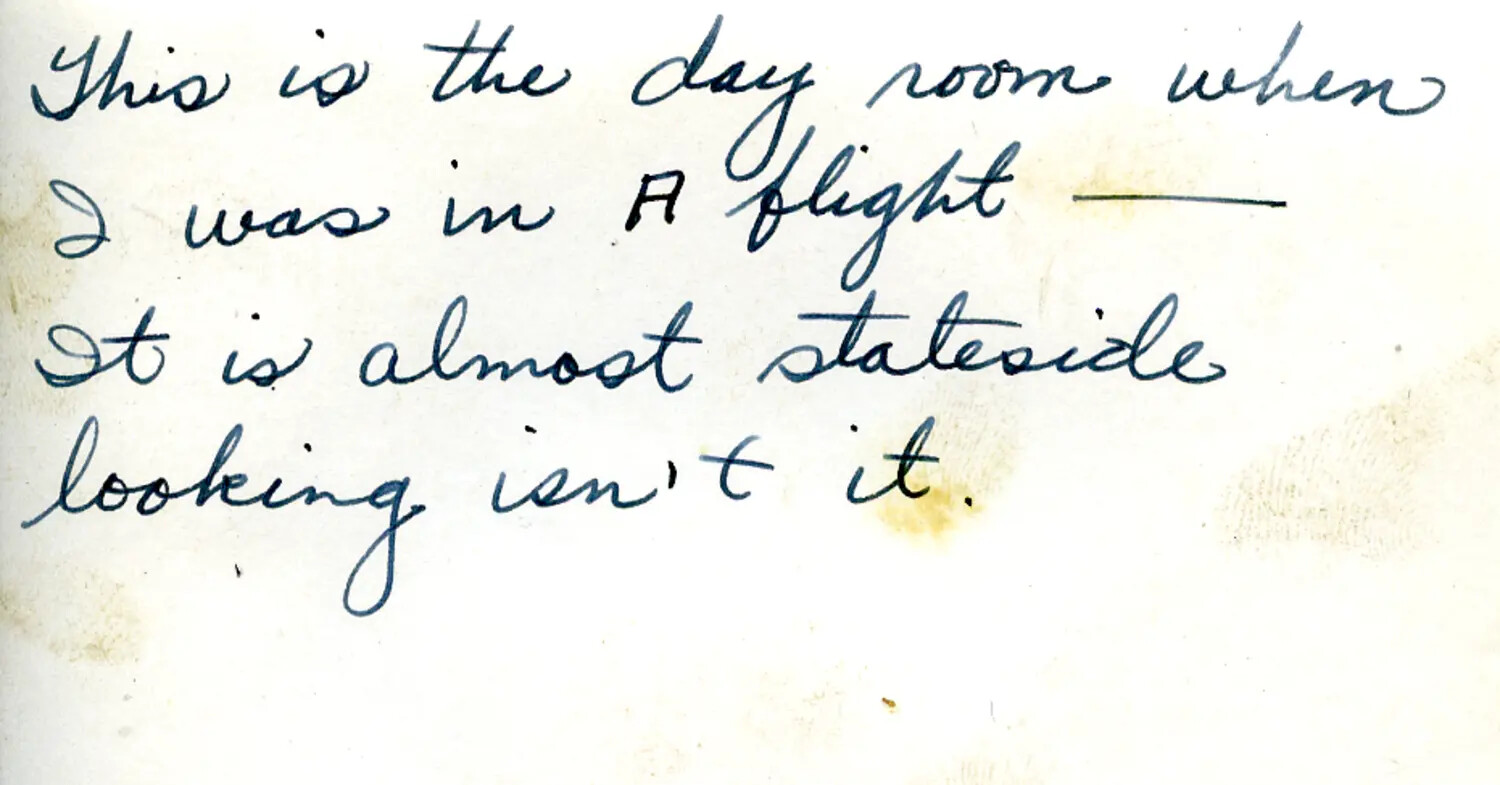 This is the day room when
I was in A flight —
It is almost stateside
looking isn't it.